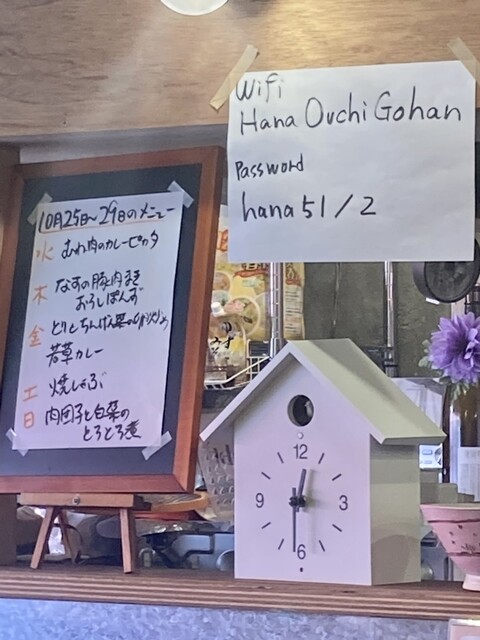 Wifi
Hana Ouchi Gohan
Password
hana51/2
10月25日~29日のメニュー
火 むね肉のカレーピカタ
木 なすの豚肉まき
おろしぽんず
金
若草カレー
土 焼しゃぶ
日 肉団子と白菜の
とろとろ煮
12
9
3
6